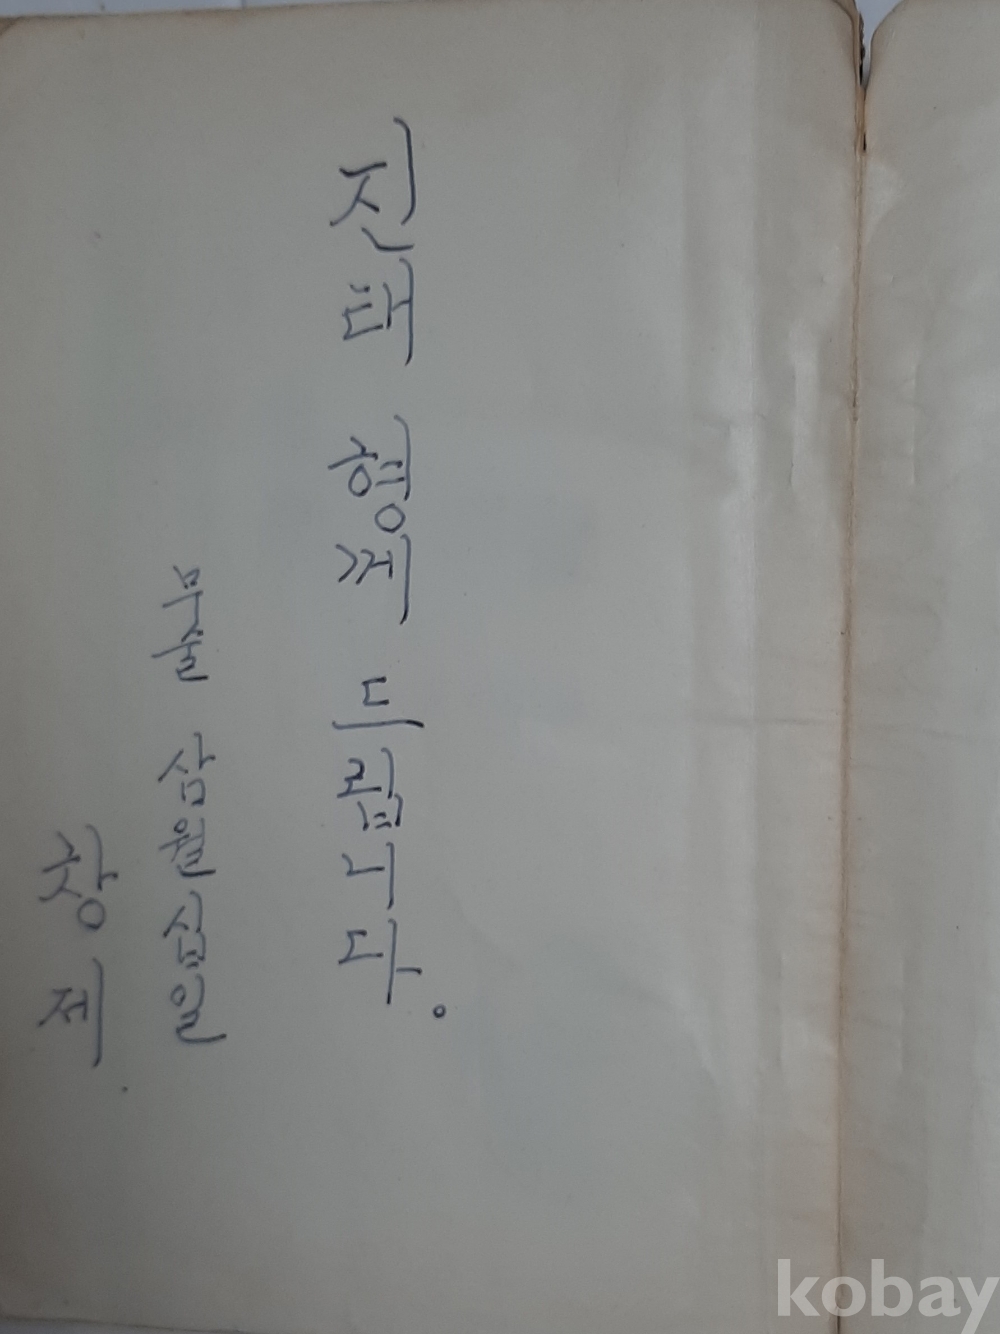 진태 형께 드립니다.
삼월십일
창제